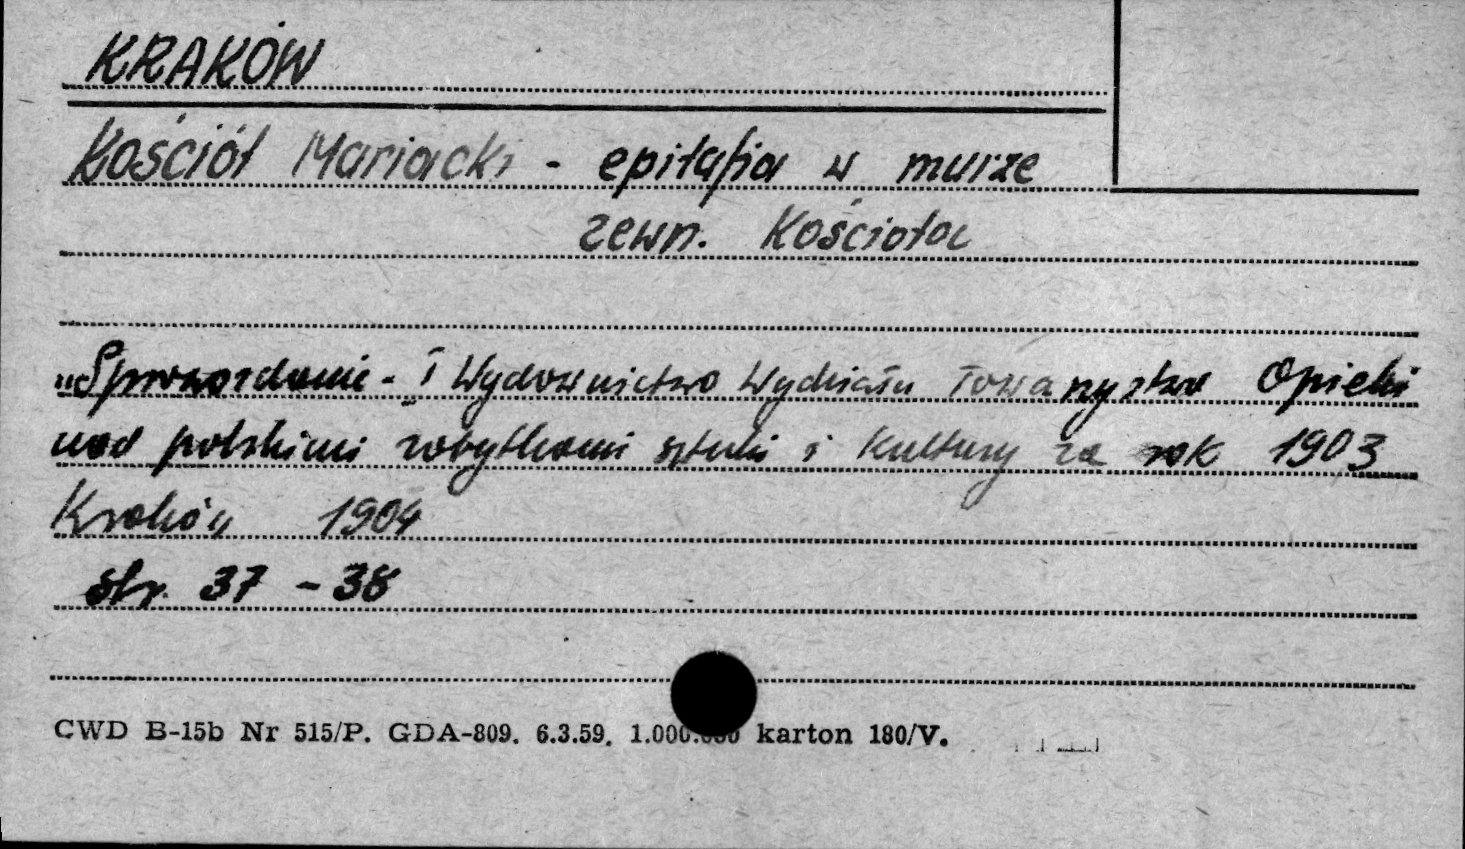 KRAKÓW
Kościół Mariacki - epitafia w murze
zewn. Kościoła
„Sprawozdanie - I Wydawnictwo Wydziału Towarzystwa Opieki
nad polskimi zabytkami sztuki i Kultury za rok 1903
Kraków 1904
str. 37 - 38
CWD B-15b Nr 515/P. GDA-809. 6.3.59. 1.000.000 karton 180/V.